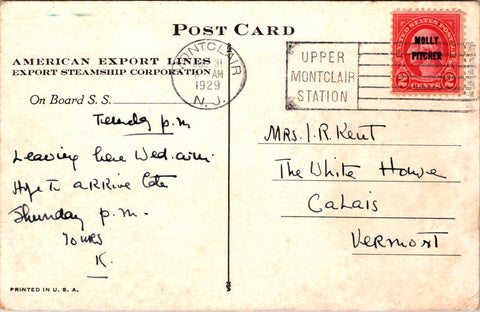 POST CARD
AMERICAN EXPORT LINES
EXPORT STEAMSHIP CORPORATION
On Board S.S.
Tuesday p.m
Leaving here Wed. a.m.
Hope to arrive late
Thursday p.m.
Yours
K.
PRINTED IN U.S.A.
MONTCLAIR
31
AM
1929
N.J.
UPPER
MONTCLAIR
STATION
UNITED STATES POSTAGE
MOLLY
PITCHER
2 CENTS 2
Mrs. I. R. Kent
The White House
Calais
Vermont